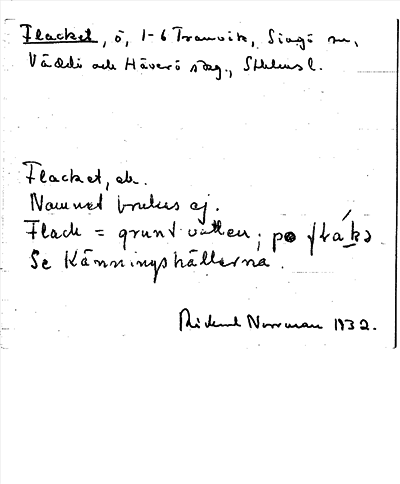 Flacket, ö, 1-6 Tranvik, Singö sn,
Väddö och Häverö skg., Sthlms l.
Flacket, ek.
Namnet brukas ej.
Flack = grunt vatten; på
Se Känningshällarna.
Rickard Norrman 1932.